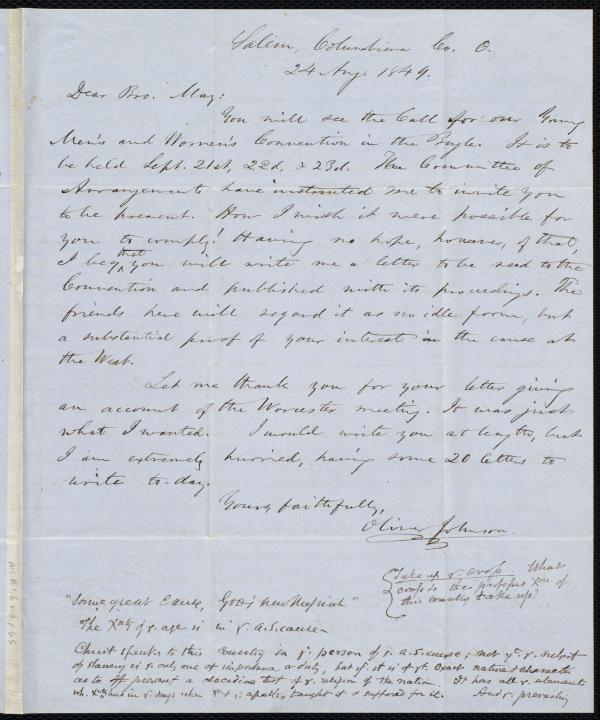 Salem, Columbiana Co. O.
24 Aug. 1849.
Dear Bro. May:
You will see the Call for our Young
Men's and Women's Convention in the Bugle. It is to
be held Sept. 21st, 22d, & 23d. The Committee of
Arrangements have instructed me to invite you
to be present. How I wish it were possible for
you to comply! Having no hope, however, of that,
I beg that you will write me a letter to be read to the
Convention and published with its proceedings. The
friends here will regard it as no idle form, but
a substantial proof of your interest in the cause at
the West.
Let me thank you for your letter giving
an account of the Worcester meeting. It was just
what I wanted. I would write you at length, but
I am extremely hurried, having some 20 letters to
write to-day.
Yours, faithfully,
Oliver Johnson.
Take up yr. cross. What
cross is the professg Xn. of
this country to take up?
"Some great Cause, God's new Messiah"
The Xnty of ye. age is in ye. A.S. cause
Christ speaks to this country in ye. person of ye. A.S. cause; not yt. ye. subject
of slavery is ye. only one of importance or duty, but yt. it is of yt. exact nature & character
as to present a decisive test of ye. religion of the nation. It has all ye. elements
wh. Xty had in ye. days when Xt & ye. apostles taught it & suffered for it. And ye. prevailing